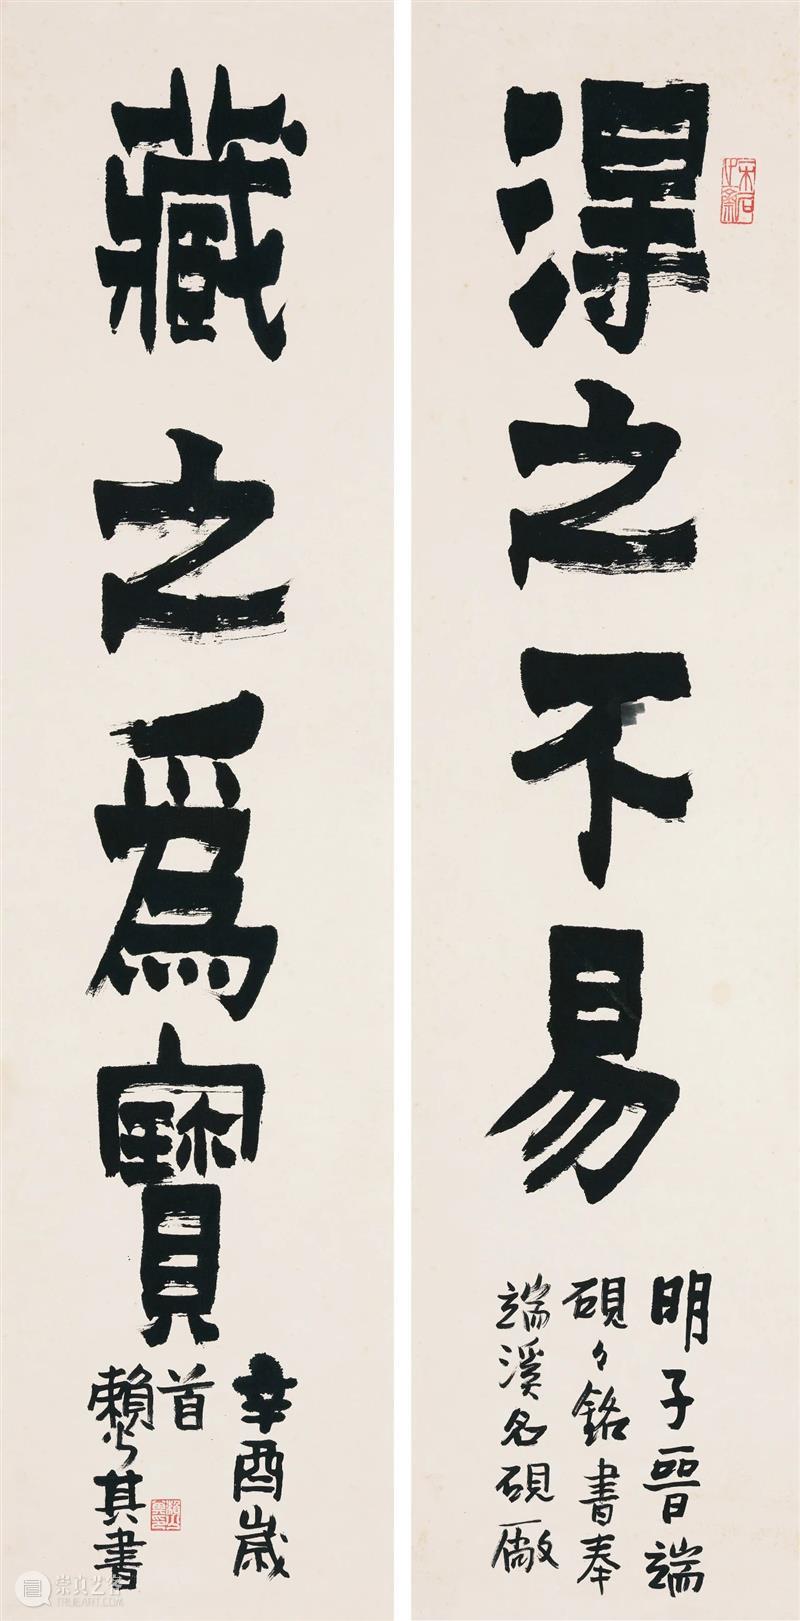 淂之不易
明子晉端
硯々銘書奉
端溪名硯廠
藏之爲寳
辛酉歲
首
賴少其書
崇真艺客
WWW.TRUEART.COM